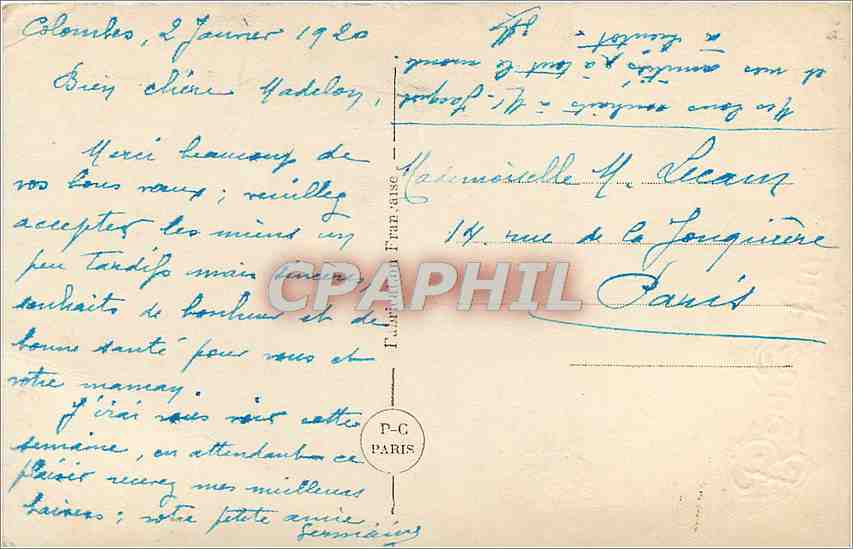 Colombes, 2 Janvier 1920
Bien chère Madelon,
Merci beaucoup de
vos bons vœux ; veuillez
accepter les miens un
peu tardifs mais sincères,
souhaits de bonheur et de
bonne santé pour vous et
votre maman.
J'irai vous voir cette
semaine, en attendant ce
plaisir recevez mes meilleurs
baisers ; votre petite amie
Germaine
Mes bons souhaits à Mr Jacquot
et mes amitiés à tout le monde
à bientôt
Mademoiselle M. Lecain
14 rue de la Jonquière
Paris
Fabrication Française
P-C
PARIS
CPAPHIL